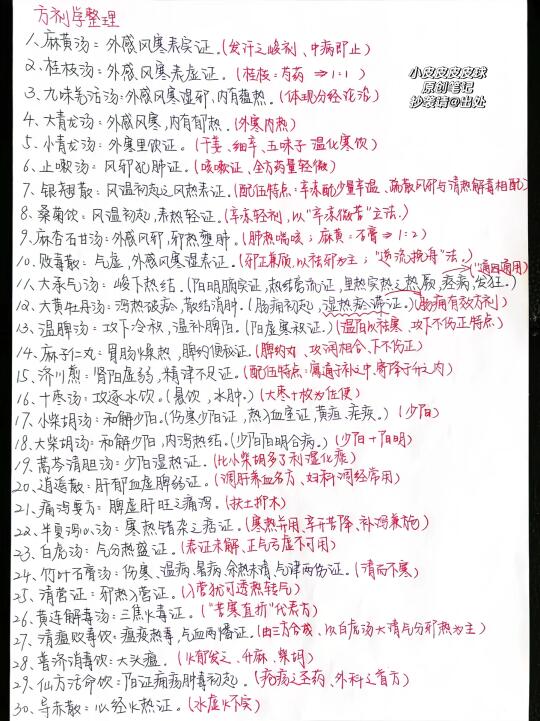 方剂学整理
1、麻黄汤：外感风寒表实证。(发汗之峻剂、中病即止)
2、桂枝汤：外感风寒表虚证。(桂枝：芍药 ⇒ 1:1)
小皮皮皮皮球
原创笔记
抄袭请@出处
3、九味羌活汤：外感风寒湿邪、内有蕴热。(体现分经论治)
4、大青龙汤：外感风寒，内有郁热。(外寒内热)
5、小青龙汤：外寒里饮证。(干姜、细辛、五味子 温化寒饮)
6、止嗽汤：风邪犯肺证。(咳嗽证、全方药量轻微)
7、银翘散：风温初起之风热表证。(配伍特点：辛凉配少量辛温、疏散风邪与清热解毒相配)
8、桑菊饮：风温初起，表热轻证。(辛凉轻剂，以"辛凉微苦"立法.)
9、麻杏石甘汤：外感风邪，邪热壅肺。(肺热喘咳；麻黄：石膏 ⇒ 1:2)
10、败毒散：气虚，外感风寒湿表证。(邪正兼顾，以祛邪为主；"逆流挽舟"法。)
("通因通用")
11、大承气汤：峻下热结。(阳明腑实证，热结旁流证，里热实热之热厥，痉病，发狂。)
12、大黄牡丹汤：泻热破瘀，散结消肿。(肠痈初起，湿热瘀滞证。)(肠痈有效方剂)
13、温脾汤：攻下冷积，温补脾阳。(阳虚寒积证。)(温阳以祛寒、攻下不伤正特点)
14、麻子仁丸：胃肠燥热，脾约便秘证。(脾约丸、攻润相合、下不伤正)
15、济川煎：肾阳虚弱，精津不足证。(配伍特点：寓通于补之中、寄降于升之内)
16、十枣汤：攻逐水饮。(悬饮，水肿。)(大枣十枚为佐使)
17、小柴胡汤：和解少阳。(伤寒少阳证，热入血室证，黄疸、疟疾。)(少阳)
18、大柴胡汤：和解少阳，内泻热结。(少阳阳明合病。)(少阳+阳明)
19、蒿芩清胆汤：少阳湿热证。(比小柴胡多了利湿化痰)
20、逍遥散：肝郁血虚脾弱证。(调肝养血名方、妇科调经常用)
21、痛泻要方：脾虚肝旺之痛泻。(扶土抑木)
22、半夏泻心汤：寒热错杂之痞证。(寒热并用、辛开苦降、补泻兼施)
23、白虎汤：气分热盛证。(表证未解、正气亏虚不可用)
24、竹叶石膏汤：伤寒、温病、暑病、余热未清，气津两伤证。(清而不寒)
25、清营证：邪热入营证。(入营犹可透热转气)
26、黄连解毒汤：三焦火毒证。("苦寒直折"代表方)
27、清瘟败毒饮：瘟疫热毒，气血两燔证。(由三方合成、以白虎汤大清气分邪热为主)
28、普济消毒饮：大头瘟。(火郁发之、升麻、柴胡)
29、仙方活命饮：阳证痈疡肿毒初起。(疮疡之圣药、外科之首方)
30、导赤散：心经火热证。(水虚火不实)